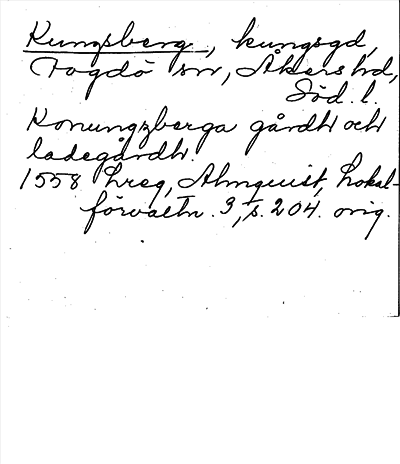 Kungsberg, kungsgd,
Fogdö sn, Åkers hd,
Söd. l.
Konungzberga gårdh och
ladegårdh.
1558 hreg, Almquist, Lokal-
förvaltn. 3, s. 204. orig.